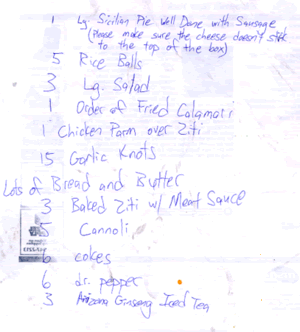 1 Lg. Sicilian Pie Well Done with Sausage
(Please make sure the cheese doesn't stick
to the top of the box)
5 Rice Balls
3 Lg. Salad
1 Order of Fried Calamari
1 Chicken Parm over Ziti
15 Garlic Knots
Lots of Bread and Butter
3 Baked Ziti w/ Meat Sauce
5 Cannoli
6 cokes
6 dr. pepper
3 Arizona Ginseng Iced Tea